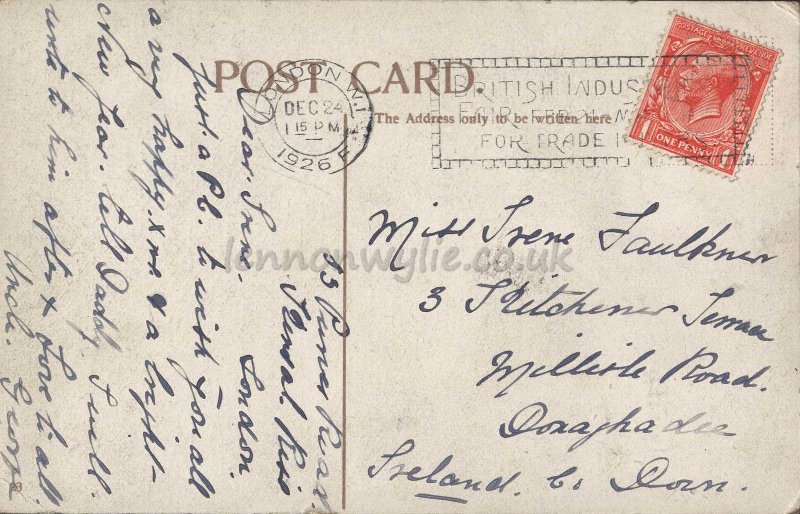 POST CARD.
The Address only to be written here
LONDON W.1
DEC 24
1 15 PM
1926
BRITISH INDUS
FAIR FEB
FOR TRADE
ONE PENNY
Miss Irene Faulkner
3 Kitchener Terrace
Millisle Road.
Donaghadee
Ireland. Co Down.
Kensal Rise
London
Dear Irene.
Just a P.C. to wish you all
a very happy Xmas & a bright
New Year. Tell Daddy I will
write to him after X Love to all.
Uncle George
lennonwylie.co.uk